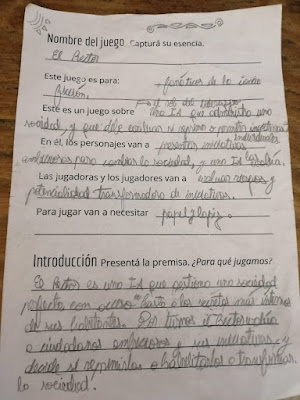 Nombre del juego Capturá su esencia.
El Rector
Este juego es para: fanáticos de la
ficción.
Este es un juego sobre el rol del liderazgo
una IA que administra una
sociedad, y que debe evaluar si reprime o permite iniciativas
individuales
En él, los personajes van a presentar iniciativas
para cambiar la sociedad, y una IA las evalúa.
Las jugadoras y los jugadores van a evaluar riesgos y
potencialidad transformadora de iniciativas.
Para jugar van a necesitar papel y lápiz.
Introducción Presentá la premisa. ¿Para qué jugamos?
El Rector es una IA que gestiona una sociedad
perfecta con acceso hasta a los secretos más íntimos
de sus habitantes. Por turnos el Rector
a ciudadanos y sus iniciativas y
decide si reprimirlos o habilitarlos a transformar
la sociedad.